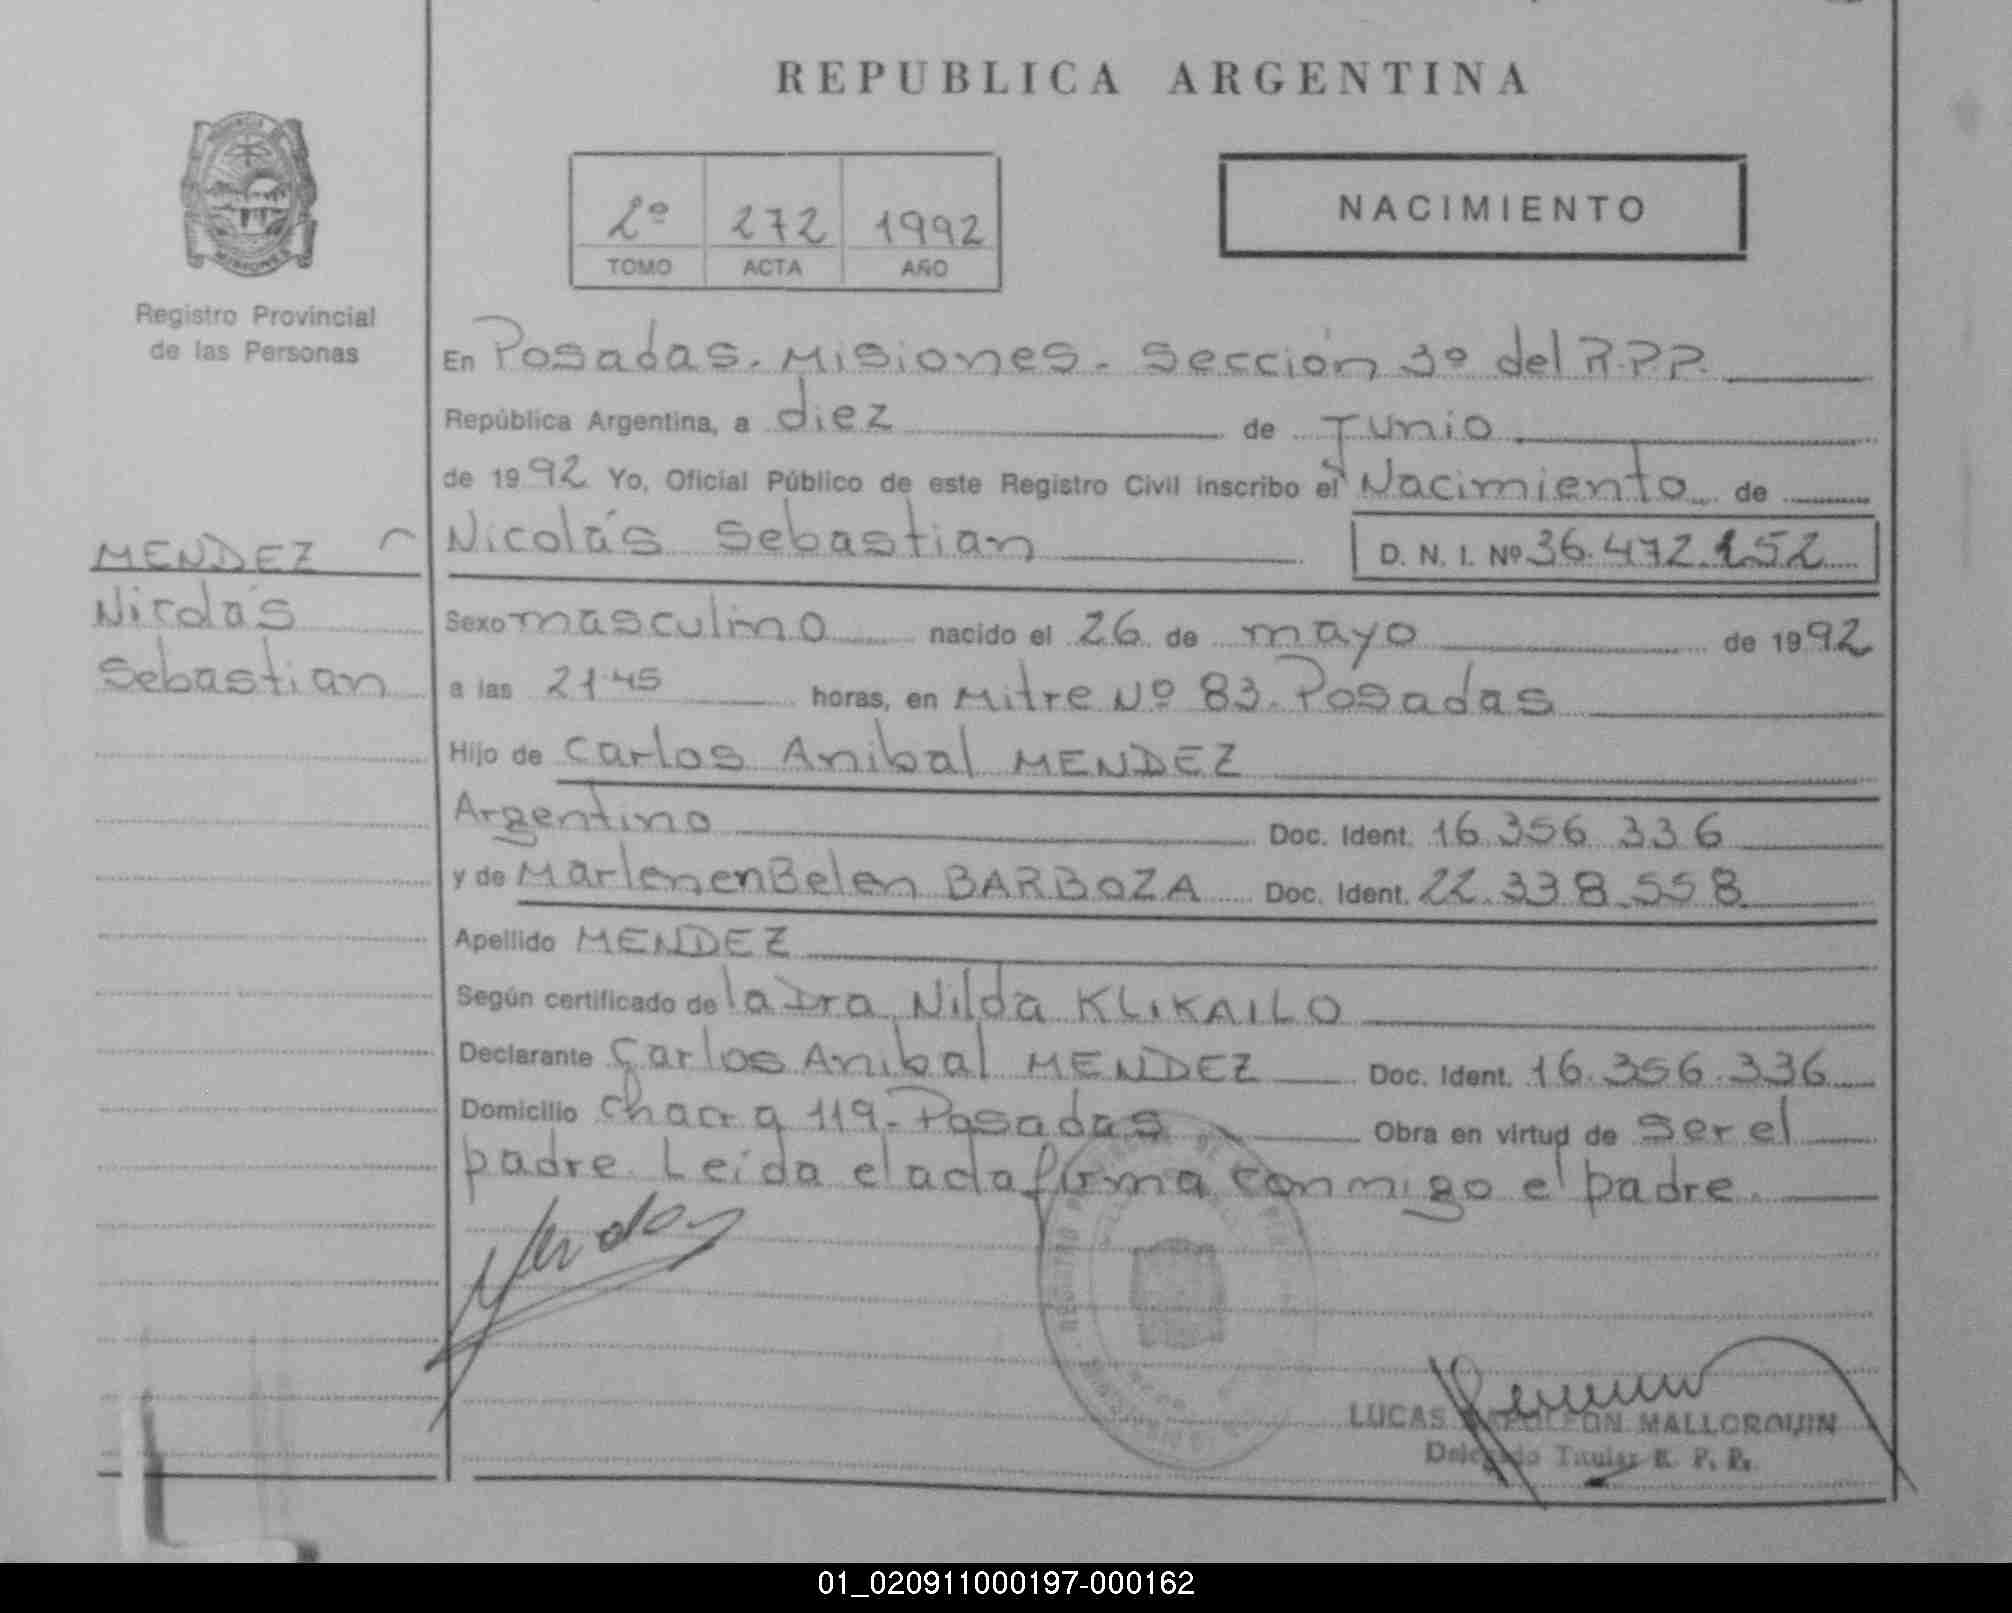 REPUBLICA ARGENTINA
2º 272 1992
TOMO ACTA AÑO
NACIMIENTO
MISIONES
Registro Provincial
de las Personas
MENDEZ
Nicolás
Sebastian
En Posadas. Misiones. Sección 3º del R.P.P.
República Argentina, a diez de Junio
de 1992 Yo, Oficial Público de este Registro Civil inscribo el Nacimiento de
Nicolás Sebastian D. N. I. Nº 36.472.152
Sexo masculino nacido el 26 de mayo de 1992
a las 21.45 horas, en Mitre Nº 83. Posadas
Hijo de Carlos Anibal MENDEZ
Argentino Doc. Ident. 16.356.336
y de Marlenen Belen BARBOZA Doc. Ident. 22.338.558
Apellido MENDEZ
Según certificado de la Dra. Nilda KLIKAILO
Declarante Carlos Anibal MENDEZ Doc. Ident. 16.356.336
Domicilio Chacra 119. Posadas Obra en virtud de ser el
padre. Leída el acta firma conmigo el padre.
LUCAS NAPOLEON MALLORQUIN
Delegado Titular R. P. P.
01_020911000197-000162